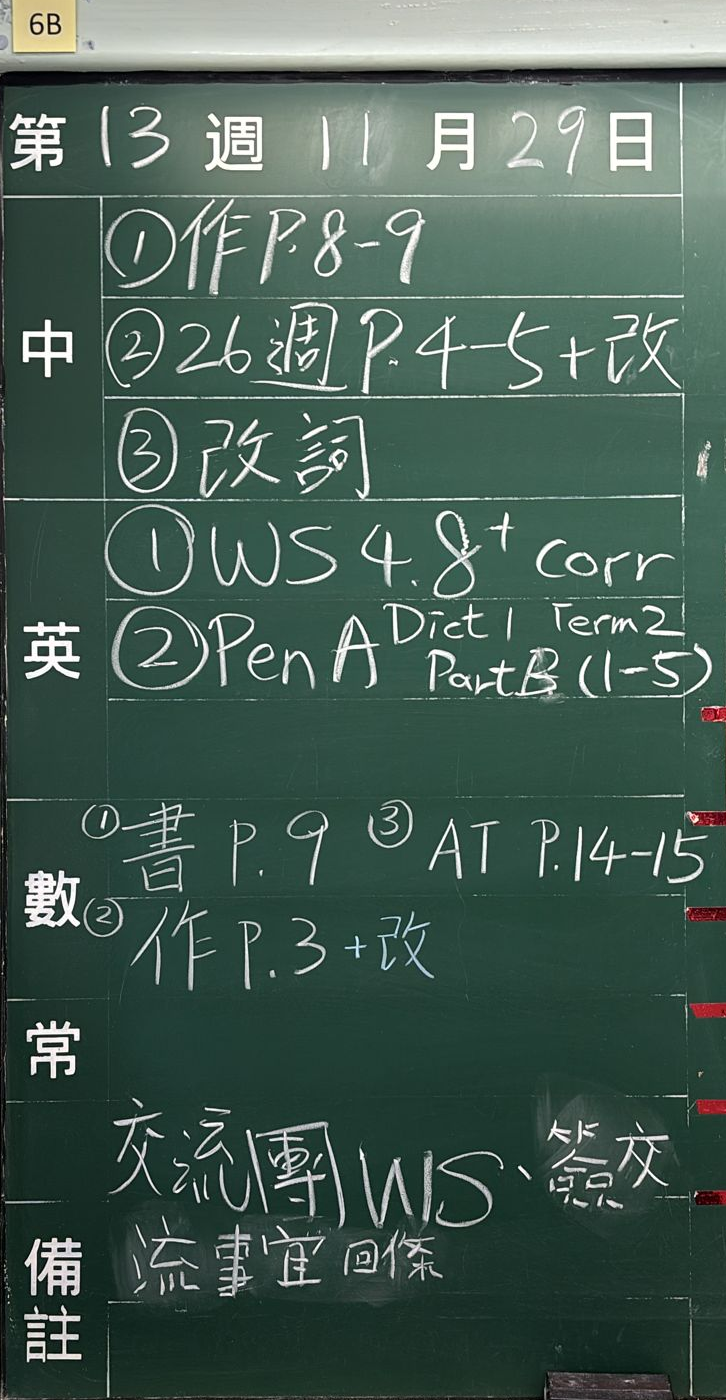 6B
第 13 週 11 月 29 日
中
①作 P.8-9
②26週 P.4-5+改
③改詞
英
①WS 4.8+ corr
②Pen A Dict 1 Term 2
Part B (1-5)
數
①書 P.9 ③AT P.14-15
②作 P.3+改
常
交流團 WS、簽交
流事宜回條
備註